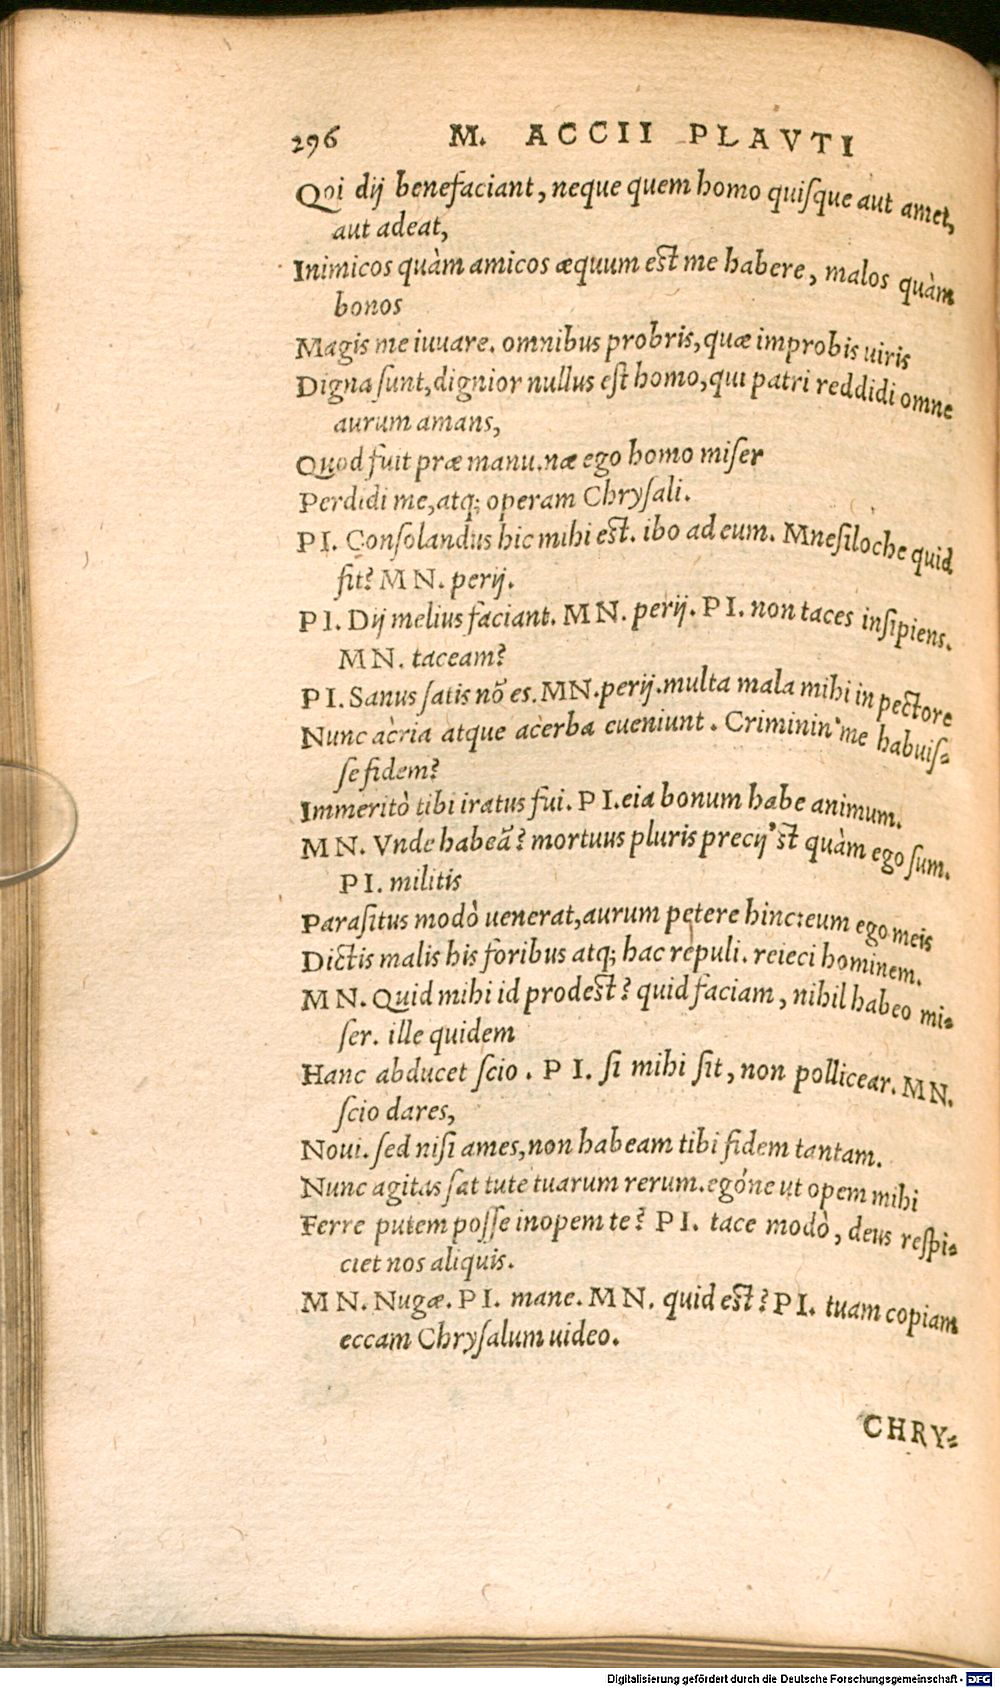 296 M. ACCII PLAVTI
Qoi dij benefaciant, neque quem homo quiſque aut amet,
aut adeat,
Inimicos quàm amicos æquum eſt me habere, malos quàm
bonos
Magis me iuuare. omnibus probris, quæ improbis uiris
Digna ſunt, dignior nullus eſt homo, qui patri reddidi omne
aurum amans,
Quod fuit præ manu. næ ego homo miſer
Perdidi me, atq; operam Chryſali.
PI. Conſolandus hic mihi eſt. ibo ad eum. Mneſiloche quid
fit? MN. perij.
PI. Dij melius faciant. MN. perij. PI. non taces inſipiens.
MN. taceam?
PI. Sanus ſatis nõ es. MN. perij. multa mala mihi in pectore
Nunc acria atque acerba eueniunt. Criminin' me habuiſ-
ſe fidem?
Immeritò tibi iratus fui. PI. eia bonum habe animum.
MN. Vnde habeã? mortuus pluris precij'ſt quàm ego ſum.
PI. militis
Paraſitus modò uenerat, aurum petere hinc: eum ego meis
Dictis malis his foribus atq; hac repuli. reieci hominem.
MN. Quid mihi id prodeſt? quid faciam, nihil habeo mi-
ſer. ille quidem
Hanc abducet ſcio. PI. ſi mihi ſit, non pollicear. MN.
ſcio dares,
Noui. ſed niſi ames, non habeam tibi fidem tantam.
Nunc agitas ſat tute tuarum rerum. egóne ut opem mihi
Ferre putem poſſe inopem te? PI. tace modò, deus reſpi-
ciet nos aliquis.
MN. Nugæ. PI. mane. MN. quid eſt? PI. tuam copiam
eccam Chryſalum uideo.
CHRY-
Digitalisierung gefördert durch die Deutsche Forschungsgemeinschaft - DFG